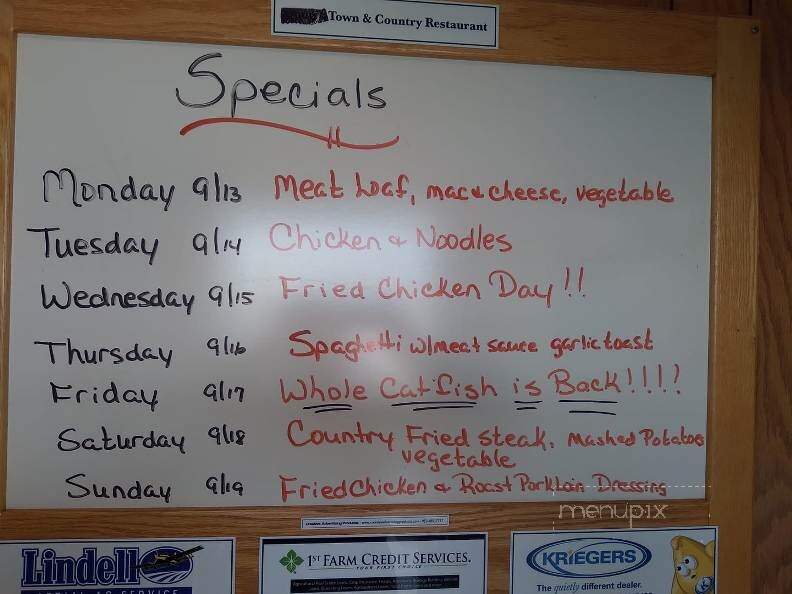 Town & Country Restaurant
Specials
Monday 9/13 Meat Loaf, mac & cheese, vegetable
Tuesday 9/14 Chicken & Noodles
Wednesday 9/15 Fried Chicken Day!!
Thursday 9/16 Spaghetti w/meat sauce garlic toast
Friday 9/17 Whole Catfish is Back!!!!
Saturday 9/18 Country Fried steak, Mashed Potatoes
vegetable
Sunday 9/19 Fried Chicken & Roast Pork Loin Dressing
menupix
Lindell
AERIAL AG SERVICE
1ST FARM CREDIT SERVICES.
YOUR FIRST CHOICE
KRIEGERS
The quietly different dealer.